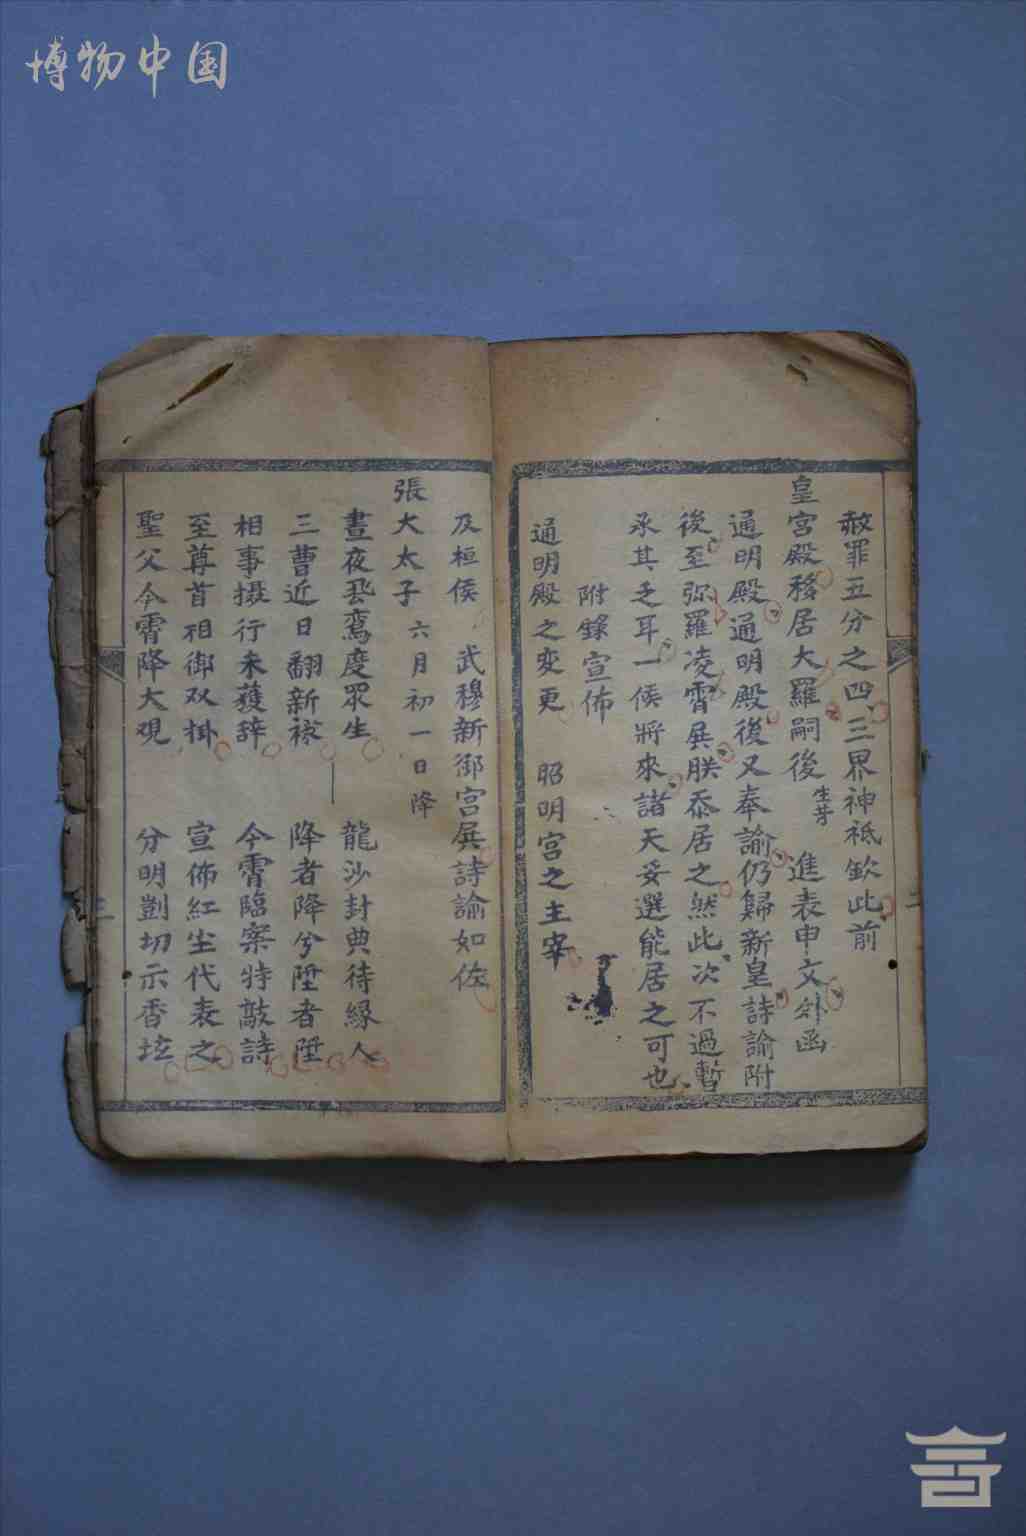 博物中国
赦罪五分之四三界神祗欽此前
皇宮殿移居大羅嗣後 進表申文外函
通明殿通明殿後又奉諭仍歸新皇詩諭附
後至弥羅凌霄展朕忝居之然此次不過暫
承其乏耳一侯將來諸天妥選能居之可也
附錄宣佈
通明殿之变更 昭明宫之主宰
及桓侯 武穆新御宫展詩諭如佐
張大太子六月初一日降
晝夜飛鸞度眾生 龍沙封典待緣人
三曹近日翻新稼 降者降兮陞者陞
相事摄行未獲辞 今霄臨案特敲詩
至尊首相御双掛 宣佈紅尘代表之
聖父今霄降大观 分明剴切示香坛
二
三